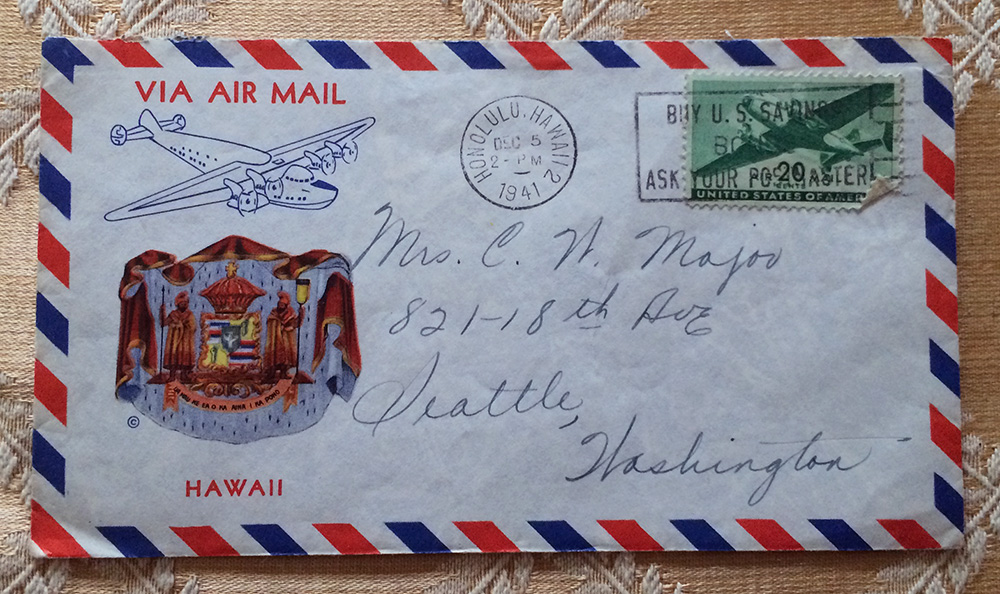 VIA AIR MAIL
HONOLULU, HAWAII 2
DEC 5
2 - PM
1941
BUY U.S. SAVINGS
ASK YOUR POSTMASTER
20
CENTS
UNITED STATES OF AMER
Mrs. C. W. Major
821-18th Ave
Seattle,
Washington
UA MAU KE EA O KA AINA I KA PONO
©
HAWAII